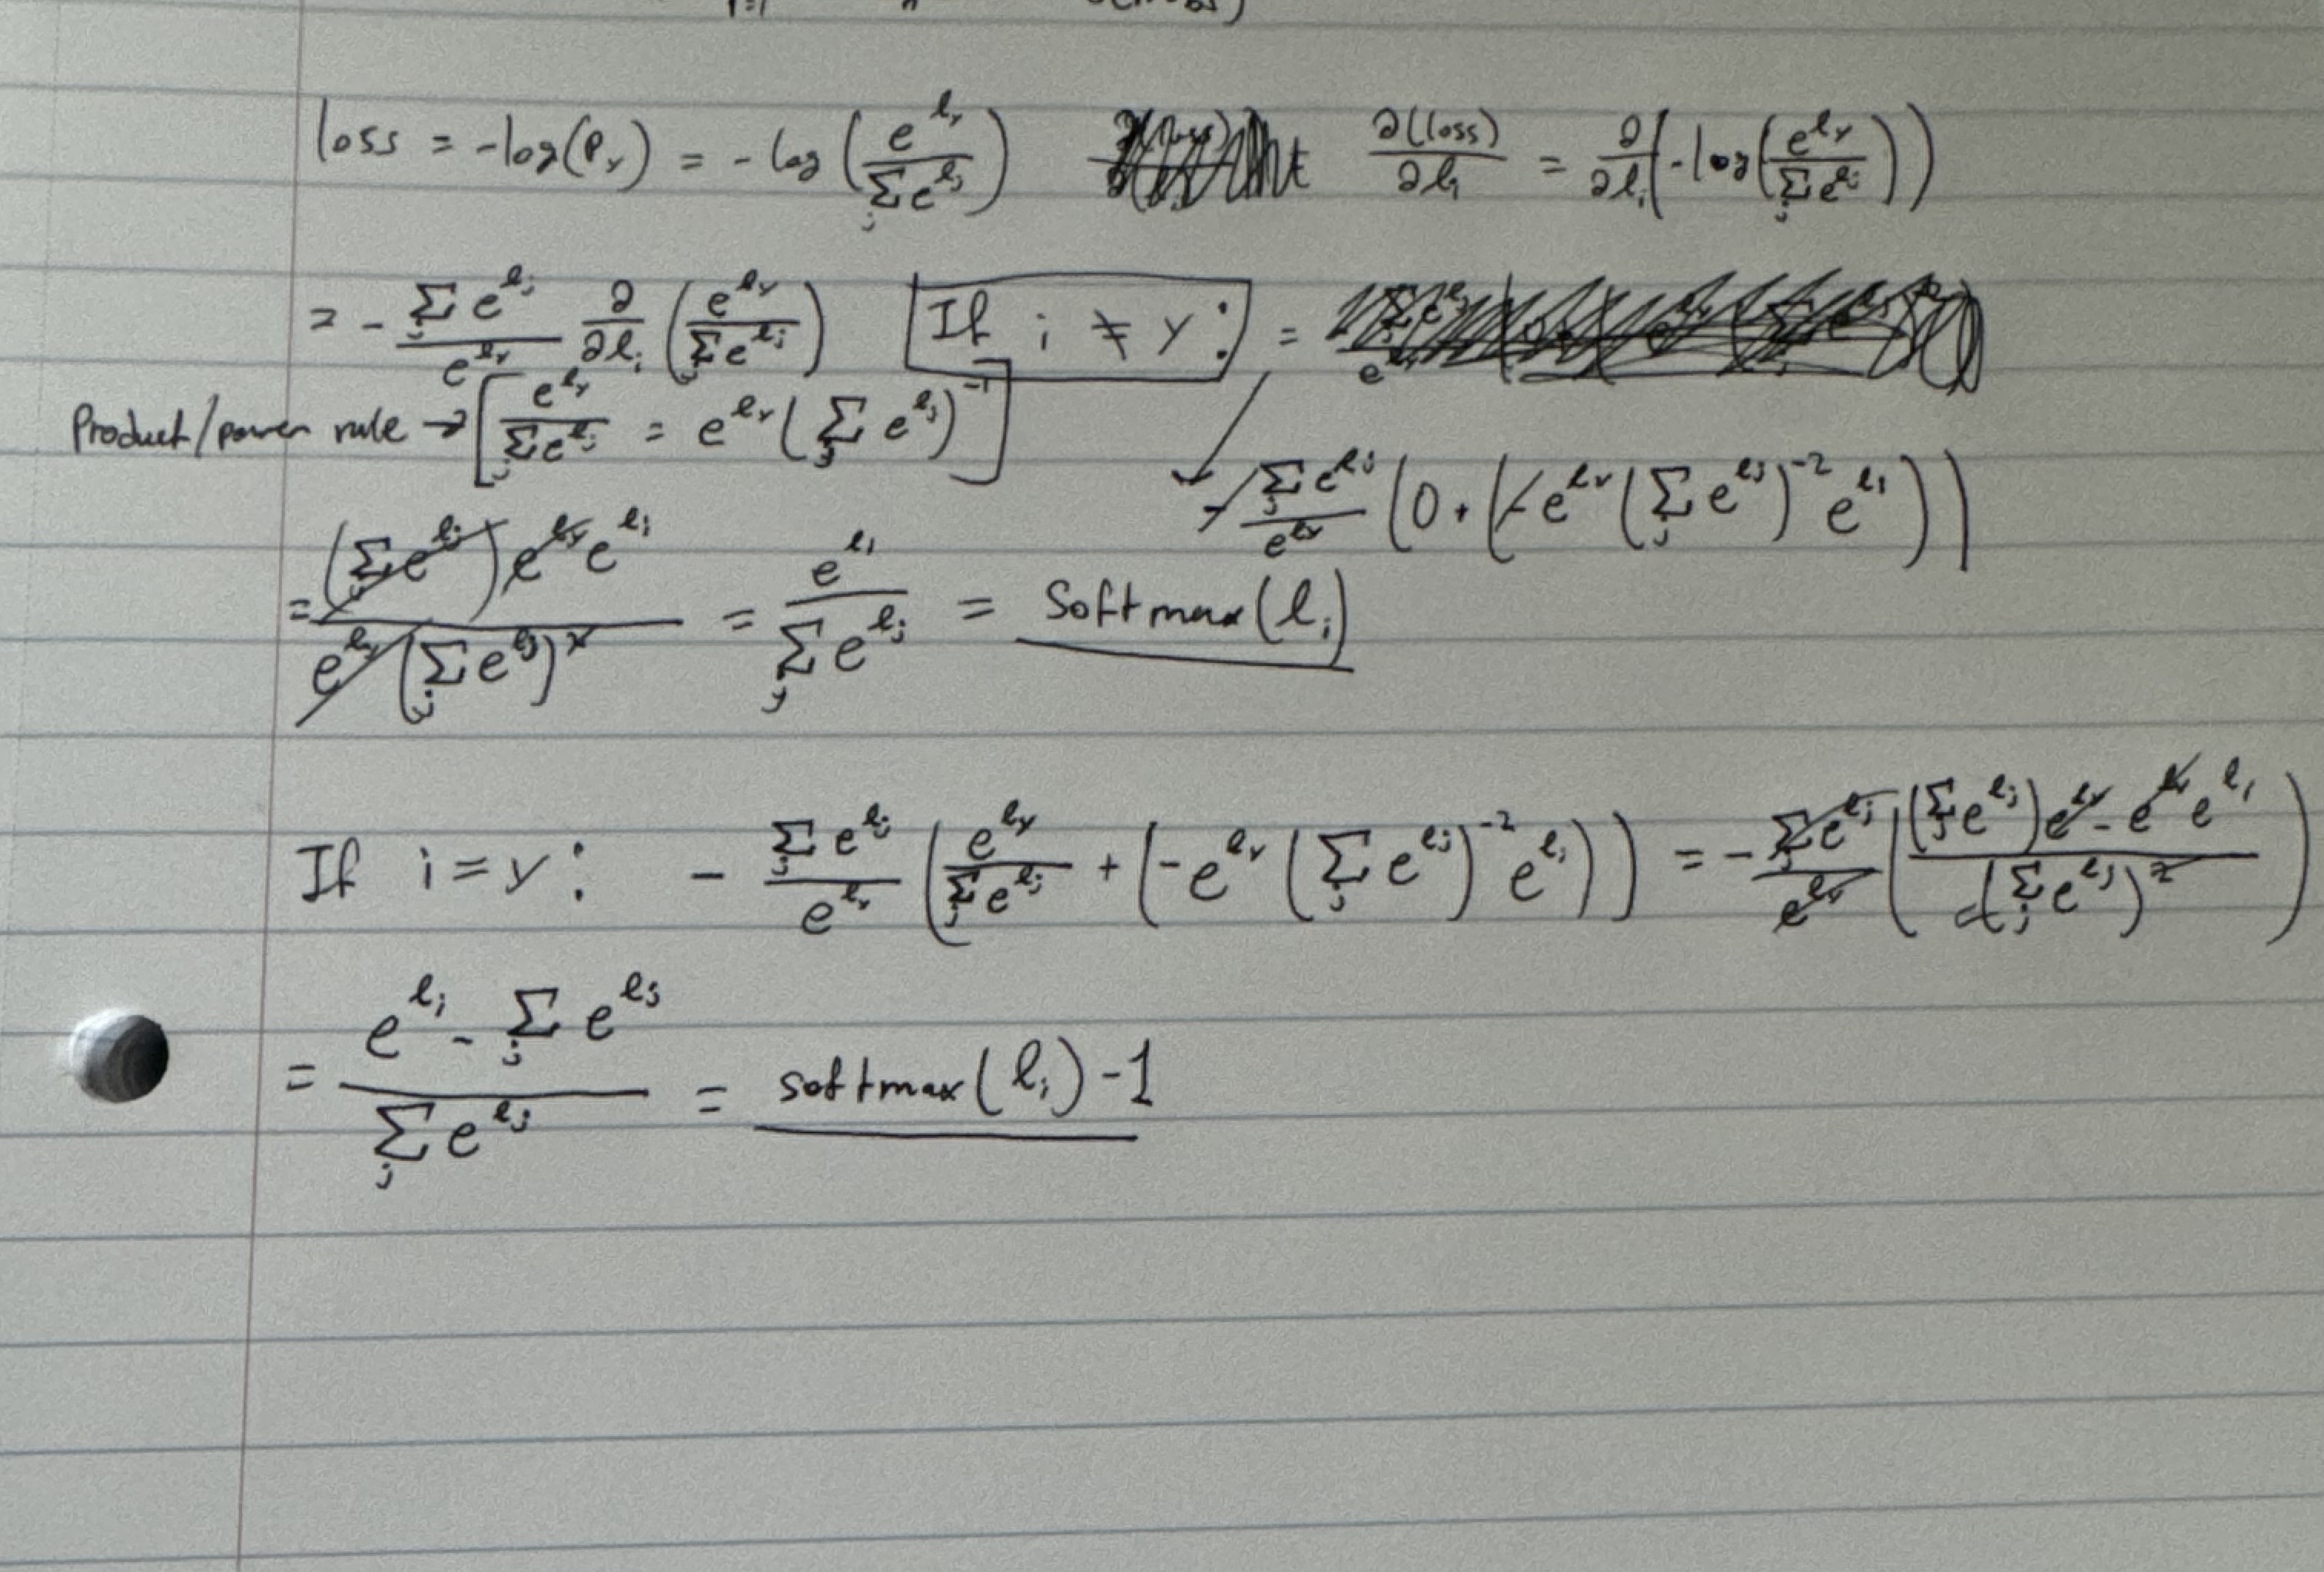 loss = -log(P_y) = -log(e^{l_y} / Σ_j e^{l_j}) ∂(loss)/∂l_i = ∂/∂l_i (-log(e^{l_y} / Σ_j e^{l_j}))
= - (Σ_j e^{l_j} / e^{l_y}) ∂/∂l_i (e^{l_y} / Σ_j e^{l_j}) If i ≠ y: =
Product/power rule → [e^{l_y} / Σ_j e^{l_j} = e^{l_y} (Σ_j e^{l_j})^{-1}]
- (Σ_j e^{l_j} / e^{l_y}) (0 + (-e^{l_y} (Σ_j e^{l_j})^{-2} e^{l_i}))
= (Σ_j e^{l_j}) e^{l_y} e^{l_i} / e^{l_y} (Σ_j e^{l_j})^2 = e^{l_i} / Σ_j e^{l_j} = Softmax(l_i)
If i = y: - (Σ_j e^{l_j} / e^{l_y}) (e^{l_y} / Σ_j e^{l_j} + (-e^{l_y} (Σ_j e^{l_j})^{-2} e^{l_i})) = - (Σ_j e^{l_j} / e^{l_y}) (((Σ_j e^{l_j}) e^{l_y} - e^{l_y} e^{l_i}) / (Σ_j e^{l_j})^2)
= (e^{l_i} - Σ_j e^{l_j}) / Σ_j e^{l_j} = softmax(l_i) - 1